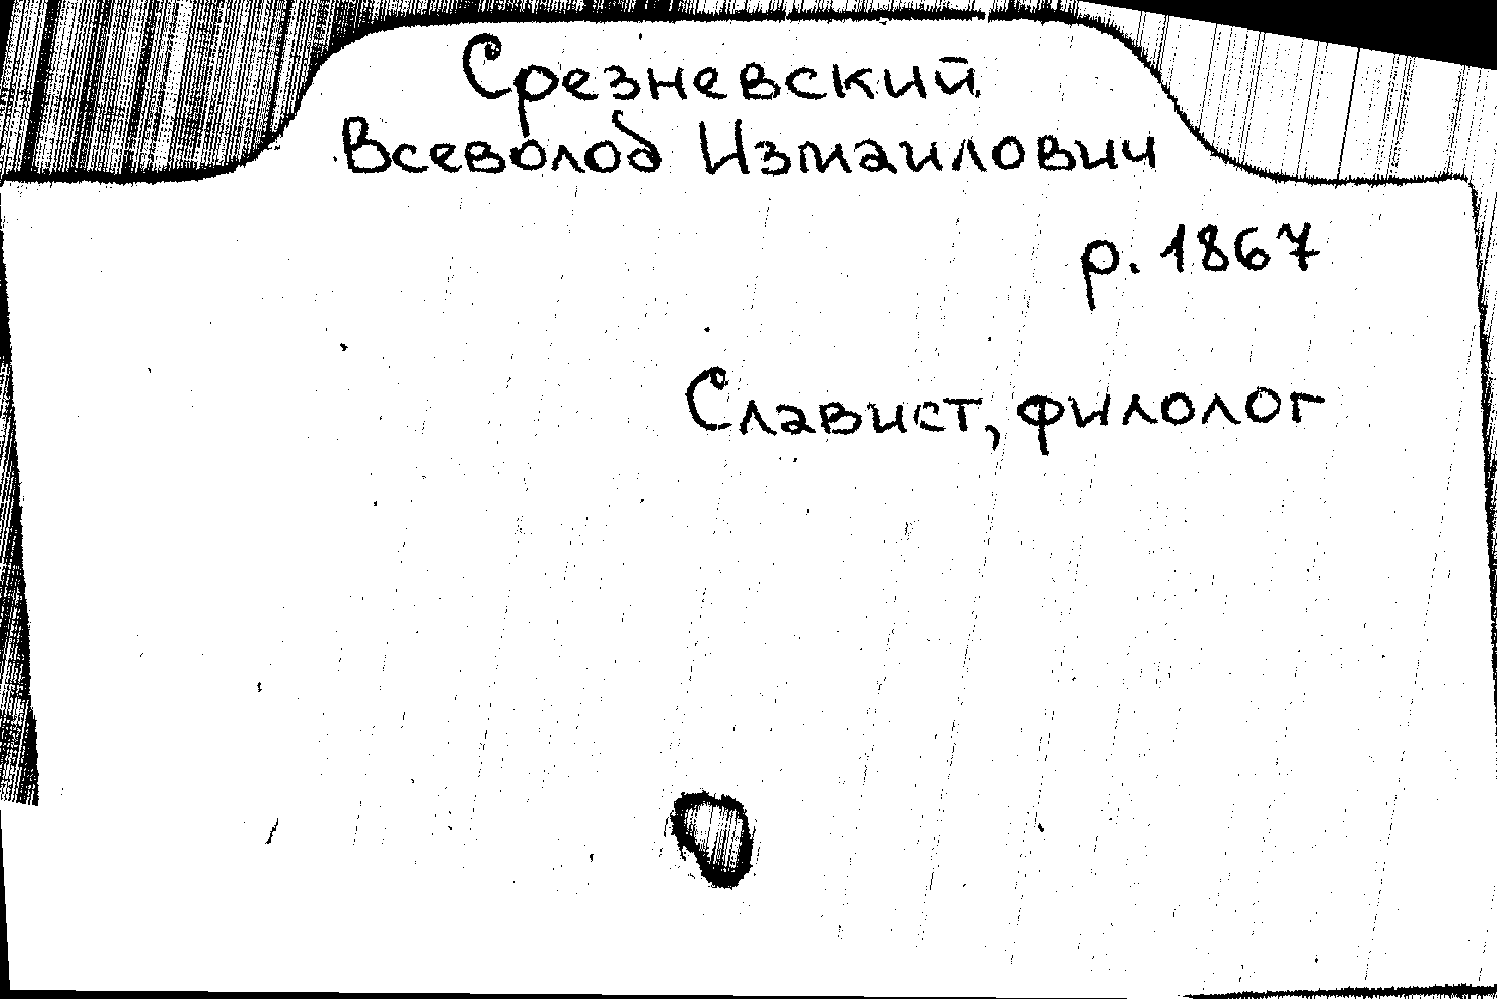 Срезневский
Всеволод Измаилович
р. 1867
Славист, филолог